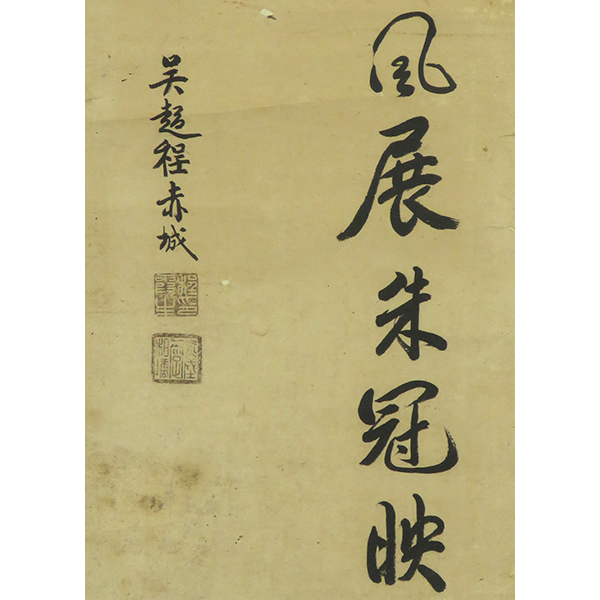 風展朱冠映
吴趨程赤城